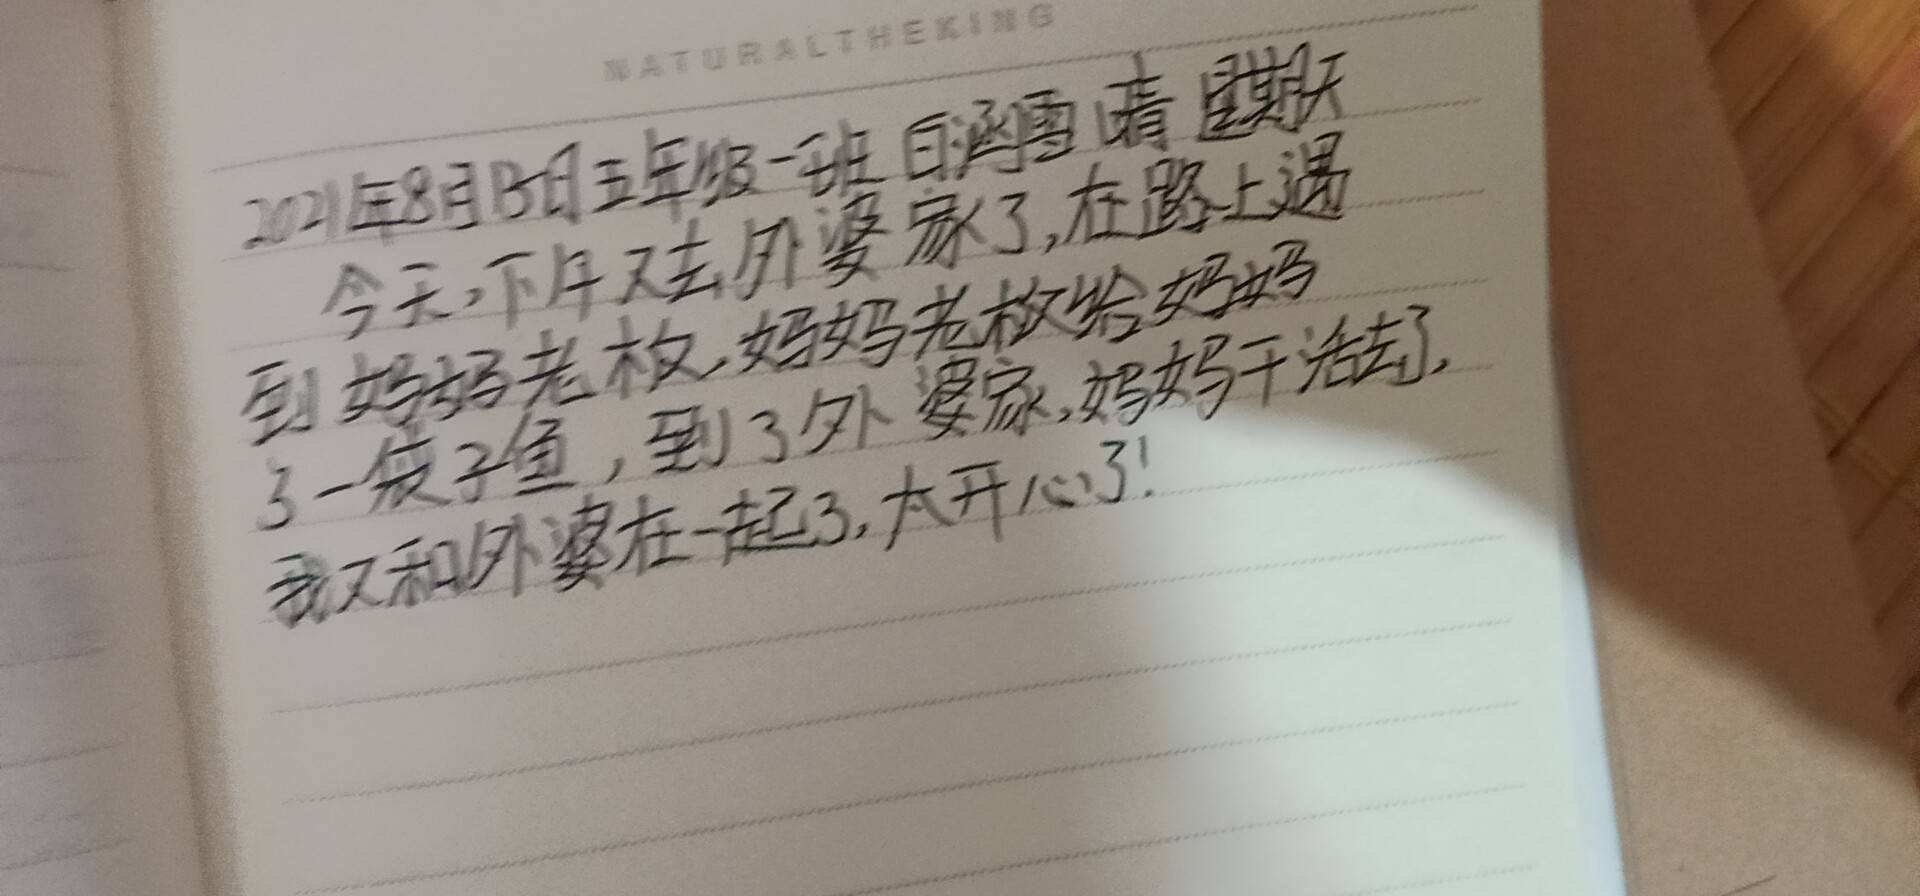 NATURALTHEKING
2021年8月15日五年级一班 白涵雪 晴 星期天
今天,下午又去外婆家了,在路上遇
到妈妈老板,妈妈老板给妈妈
了一袋子鱼,到了外婆家,妈妈干活去了,
我又和外婆在一起了,太开心了!